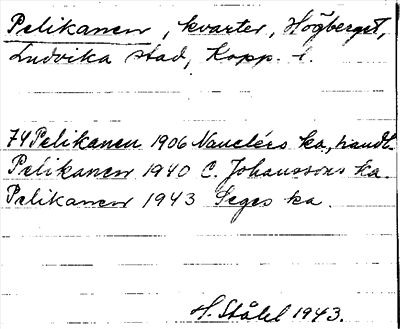 Pelikanen, kvarter, Högberget,
Ludvika stad, Kopp. l.
74 Pelikanen 1906 Nauclérs ka, handl.
Pelikanen 1940 C. Johanssons ka.
Pelikanen 1943 Seges ka.
H. Ståhl 1943.